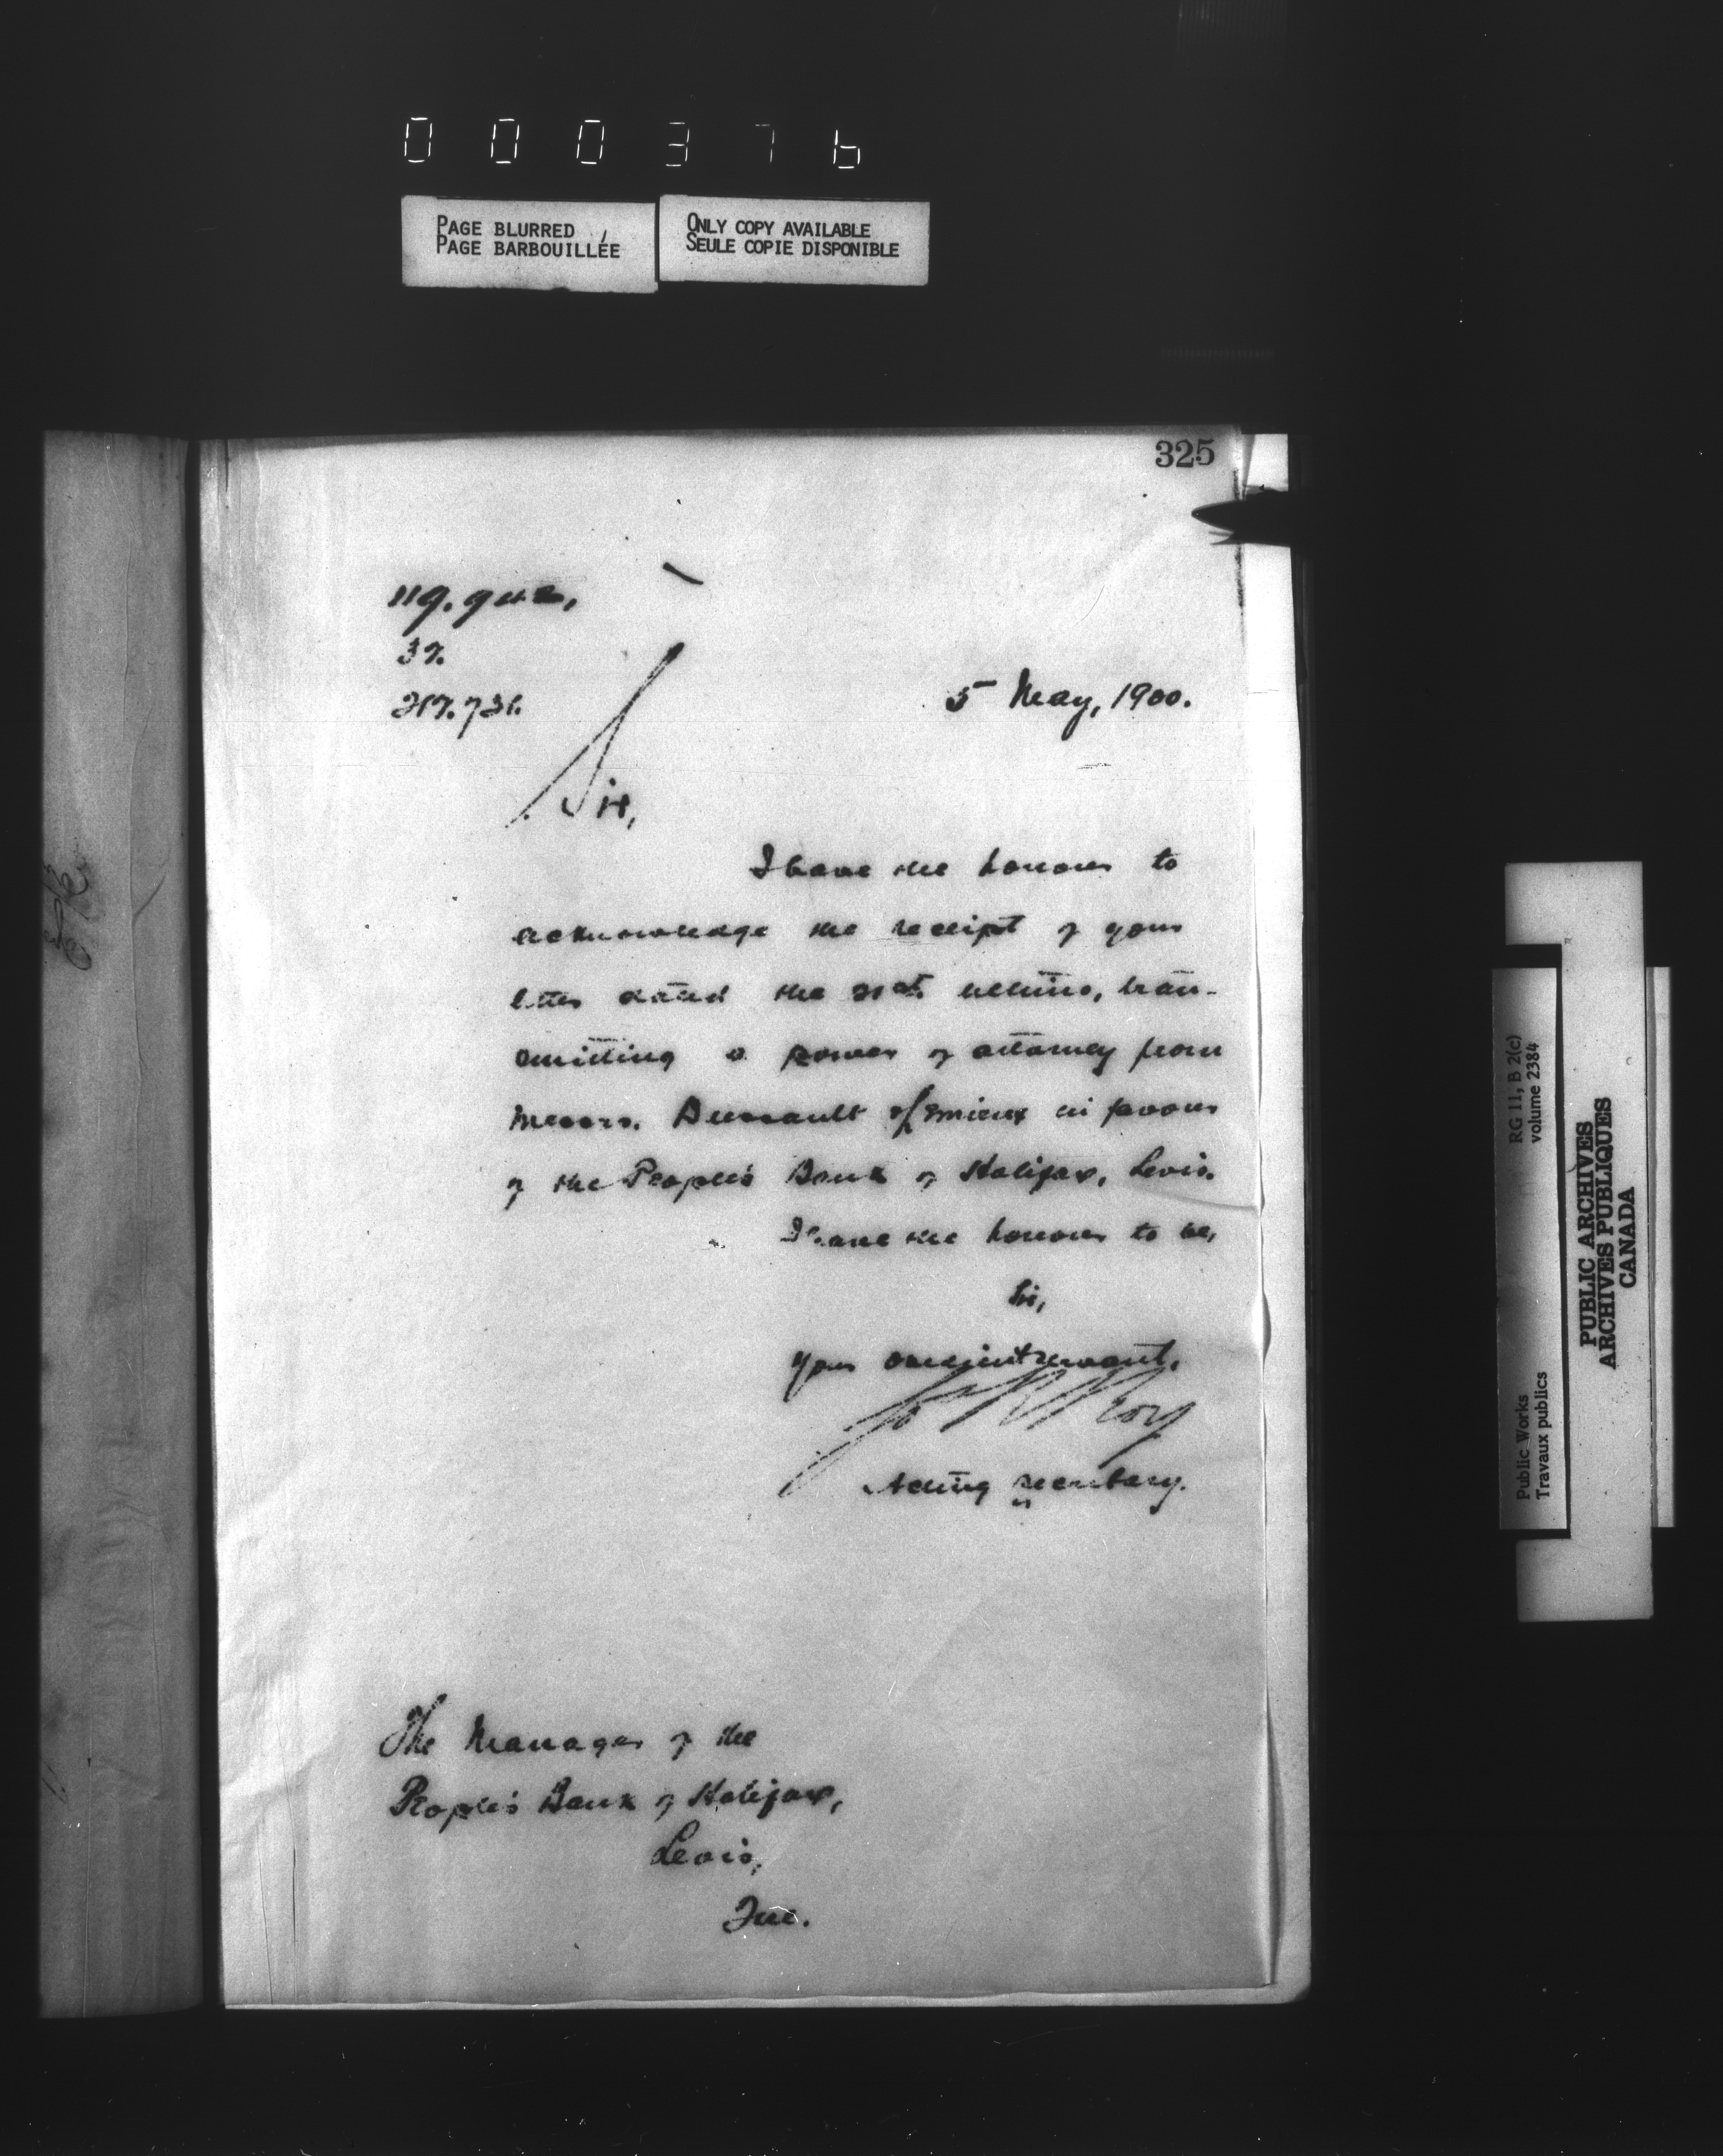 000376
PAGE BLURRED
PAGE BARBOUILLÉE
ONLY COPY AVAILABLE
SEULE COPIE DISPONIBLE
325
37.
217.731.
5 May, 1900.
Sir,
I have the honour to
acknowledge the receipt of your
letter dated the ultimo, trans-
mitting a power of attorney from
Messrs. Dussault & Lemieux in favour
of the People's Bank of Halifax, Levis.
I have the honour to be,
Sir,
Your obedient servant,
Jos R Roy
Acting Secretary.
The Manager of the
People's Bank of Halifax,
Levis,
Que.
RG 11, B 2(c)
volume 2384
Public Works
Travaux publics
PUBLIC ARCHIVES
ARCHIVES PUBLIQUES
CANADA